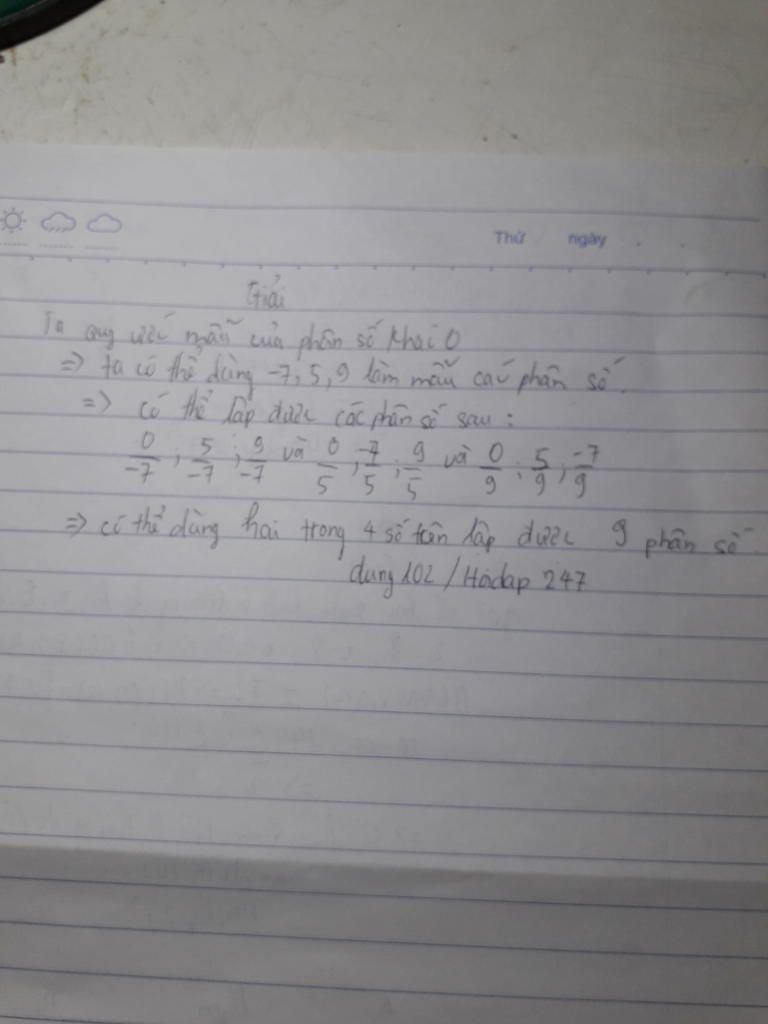 Thứ ngày . .
Giải
Ta quy ước mẫu của phân số khác 0
=> ta có thể dùng -7, 5, 9 làm mẫu các phân số.
=> có thể lập được các phân số sau :
0/-7 ; 5/-7 ; 9/-7 và 0/5 ; -7/5 ; 9/5 và 0/9 ; 5/9 ; -7/9
=> có thể dùng hai trong 4 số trên lập được 9 phân số.
dung102 / Hoidap 247